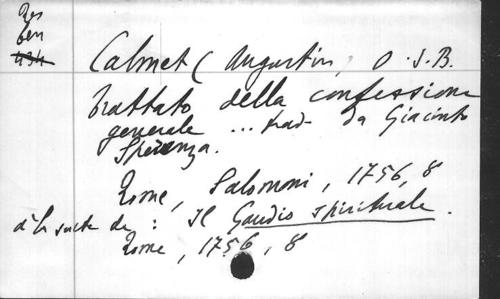 Res
Ben
434
Calmet (Augustin, O.S.B.
Trattato della confessione
generale ... trad. da Giacinto
Speranza.
Rome, Salomoni, 1756, 8
à la suite de : Il Gaudio spirituale.
Rome, 1756, 8